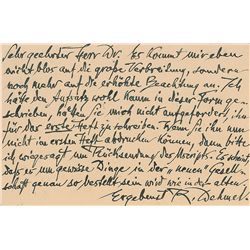 Sehr geehrter Herr Dr. Es kommt mir eben
nicht blos auf die große Verbreitung, sondern
noch mehr auf die erhöhte Beachtung an. Ich
hätte den Aufsatz wohl kaum in dieser Form ge-
schrieben, hätten Sie mich nicht aufgefordert, ihn
für das erste Heft zu schreiben. Wenn Sie ihn nun
nicht im ersten Heft abdrucken können, dann bitte
ich, wie gesagt um Rücksendung des Manscripts. Es scheint
daß es um gewisse Dinge in der „neuen" Gesell-
schaft genau so bestellt sein wird wie in der alten.
Ergebenst R. Dehmel.